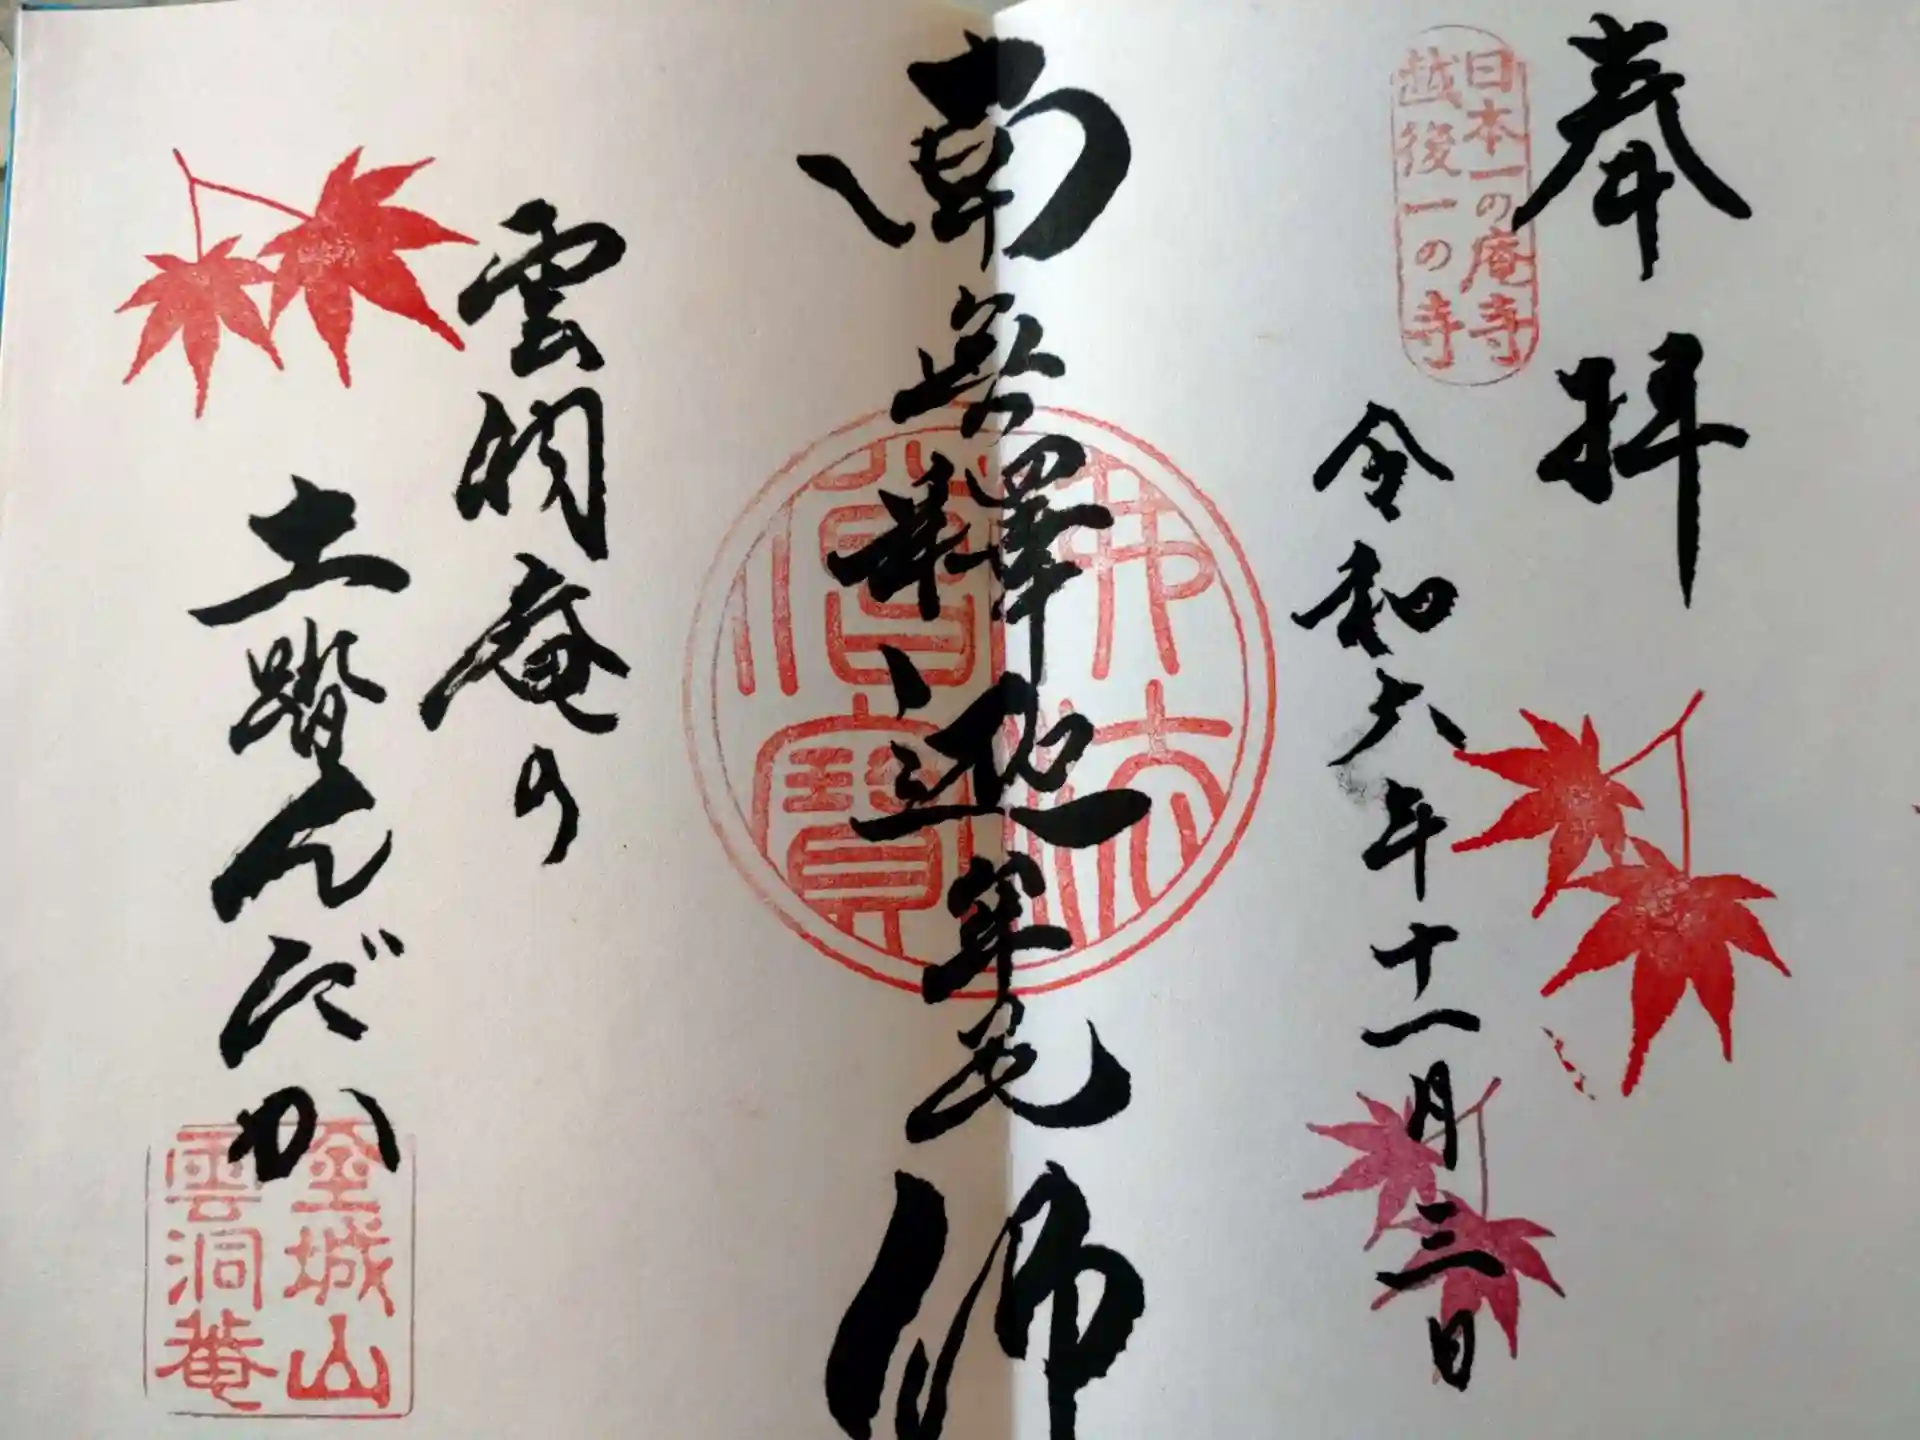 奉拝
日本一の庵寺
越後一の寺
令和六年十一月三日
南無釋迦牟尼佛
佛法僧寶
雲洞庵の
土踏んだか
金城山
雲洞菴